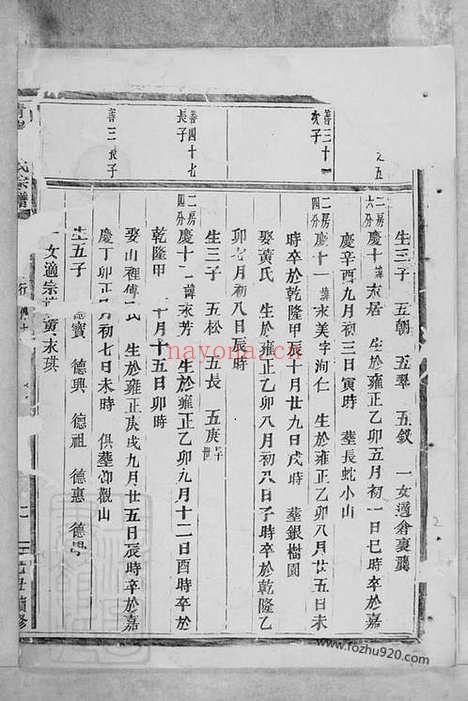 生三子 五朝 五翠 五釵 一女適倉裏龔
二房六分
慶十 諱永居 生於雍正乙卯五月初一日巳時卒於嘉
慶辛酉九月初三日寅時 葬長蛇小山
善三十一次子
二房四分
慶十一 諱永美字洵仁 生於雍正乙卯八月廿五日未
時卒於乾隆甲辰十月廿九日戌時 葬銀樹園
娶黃氏 生於雍正乙卯八月初八日子時卒於乾隆乙
卯 月初八日辰時
生三子 五松 五長 五庚
善四十七長子
二房四分
慶十 諱永芳 生於雍正乙卯年九月十二日酉時卒於
乾隆甲 十月十五日卯時
善二 長子
娶山裡傅氏 生於雍正庚戌九月廿五日辰時卒於嘉
慶丁卯正月初七日未時 俱葬仰觀山
生五子 德寶 德興 德祖 德惠 德
一女適宗 黃永琪
氏宗譜
nayona.cn
www.fozhu920.com